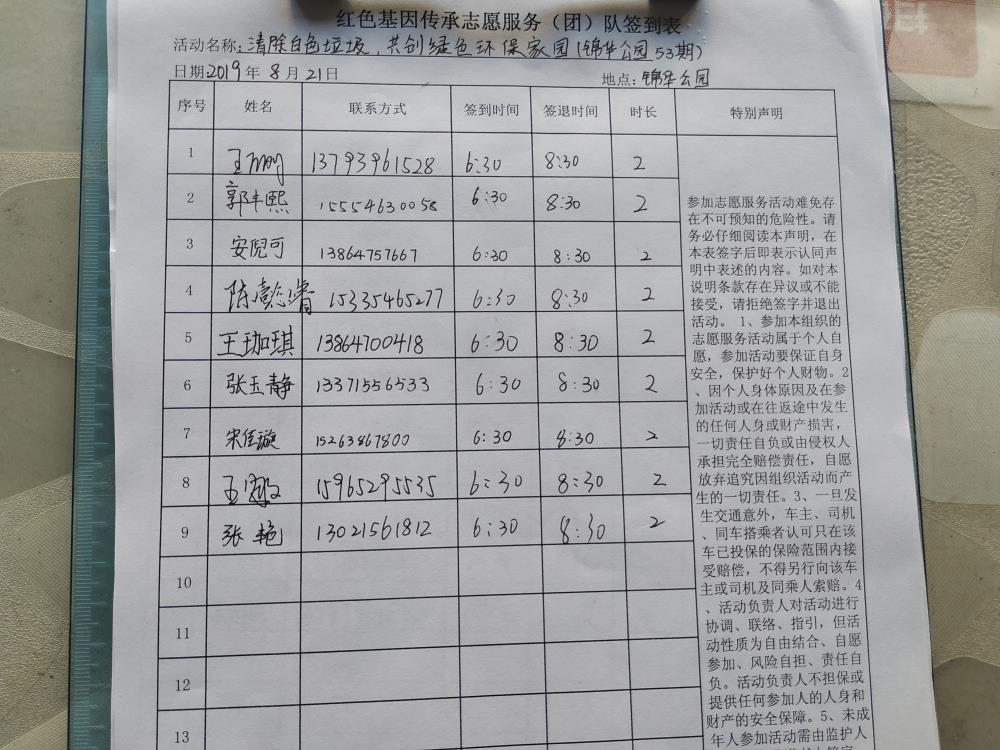 红色基因传承志愿服务（团）队签到表
活动名称：清除白色垃圾，共创绿色环保家园（锦华公园53期）
日期2019年8月21日 地点：锦华公园
序号 姓名 联系方式 签到时间 签退时间 时长 特别声明
1 13793961528 6:30 8:30 2
2 郭丰熙 15554630058 6:30 8:30 2
3 安倪可 13864757667 6:30 8:30 2
4 15335465277 6:30 8:30 2
5 王珈琪 13864700418 6:30 8:30 2
6 张玉静 13371556533 6:30 8:30 2
7 宋佳璇 15263867800 6:30 8:30 2
8 15965295535 6:30 8:30 2
9 张艳 13021561812 6:30 8:30 2
10
11
12
13
参加志愿服务活动难免存
在不可预知的危险性。请
务必仔细阅读本声明，在
本表签字后即表示认同声
明中表述的内容。如对本
说明条款存在异议或不能
接受，请拒绝签字并退出
活动。 1、参加本组织的
志愿服务活动属于个人自
愿，参加活动要保证自身
安全，保护好个人财物。2
、因个人身体原因及在参
加活动或在往返途中发生
的任何人身或财产损害，
一切责任自负或由侵权人
承担完全赔偿责任，自愿
放弃追究因组织活动而产
生的一切责任。3、一旦发
生交通意外，车主、司机
、同车搭乘者认可只在该
车已投保的保险范围内接
受赔偿，不得另行向该车
主或司机及同乘人索赔。4
、活动负责人对活动进行
协调、联络、指引，但活
动性质为自由结合、自愿
参加、风险自担、责任自
负。活动负责人不担保或
提供任何参加人的人身和
财产的安全保障。5、未成
年人参加活动需由监护人